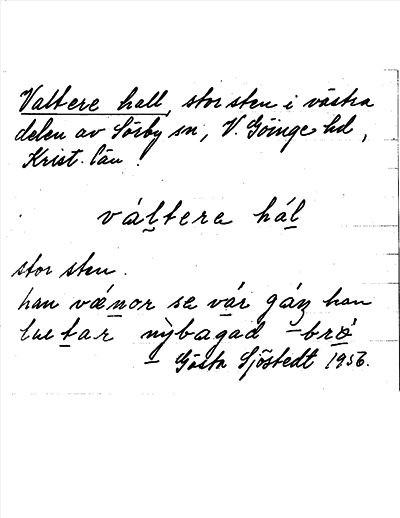 Valtere hall, stor sten i västra
delen av Sörby sn, V. Göinge hd,
Krist. län.
váltere hál
stor sten.
han vǽnor se vár gáŋ han
luetar nỳbagad -brǿ
- Gösta Sjöstedt 1936.